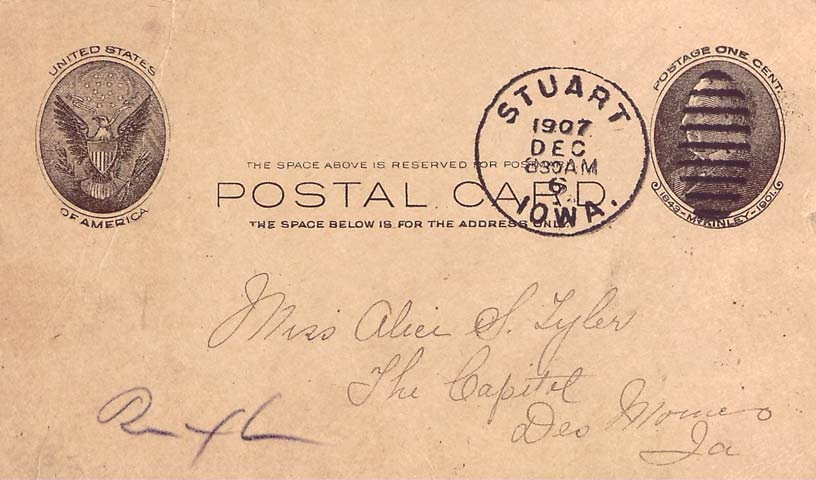 UNITED STATES
OF AMERICA
POSTAGE ONE CENT.
1843-McKINLEY-1901.
STUART
1907
DEC
830AM
6
IOWA.
THE SPACE ABOVE IS RESERVED FOR POSTMARK.
POSTAL CARD.
THE SPACE BELOW IS FOR THE ADDRESS ONLY.
Miss Alice S. Tyler
The Capitol
Des Moines
Ia